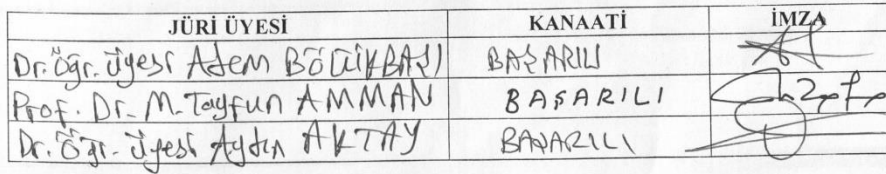 JÜRİ ÜYESİ KANAATİ İMZA
Dr. Öğr. Üyesi Adem BÖLÜKBAŞI BAŞARILI
Prof. Dr. M. Tayfun AMMAN BAŞARILI
Dr. Öğr. Üyesi Aydın AKTAY BAŞARILI